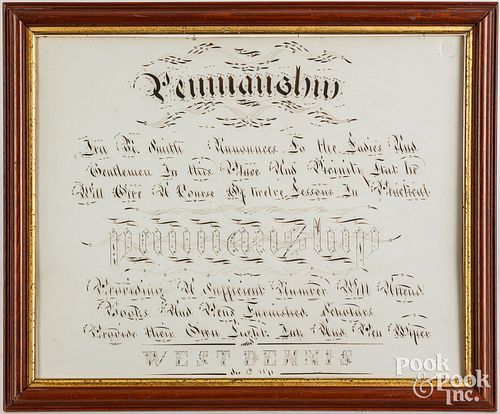 Penmanship
Ira M. Smith Announces To the Ladies And
Gentlemen In this Place And Vicinity That he
Will Give A Course Of twelve Lessons In Practical
penmanship
Providing A Sufficient Number Will Attend
Books And Pens Furnished. Scholars
Provide their Own Light Ink And Pen Wiper
WEST DENNIS
POOK
& POOK
INC.